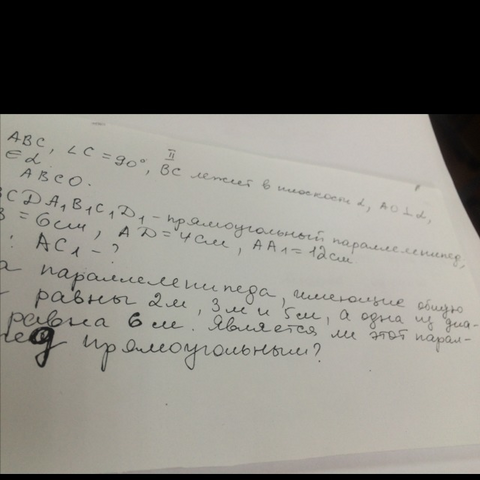 ABC, ∠C = 90°, BC лежит в плоскости α, AO ⊥ α,
II
∈ α.
ABCO.
BCDA₁B₁C₁D₁ - прямоугольный параллелепипед,
= 6см, AD = 4см, AA₁ = 12см
: AC₁ - ?
параллелепипеда, имеющие общую
равны 2м, 3м и 5м, а одна из диа-
равна 6м. Является ли этот парал-
пед прямоугольным?